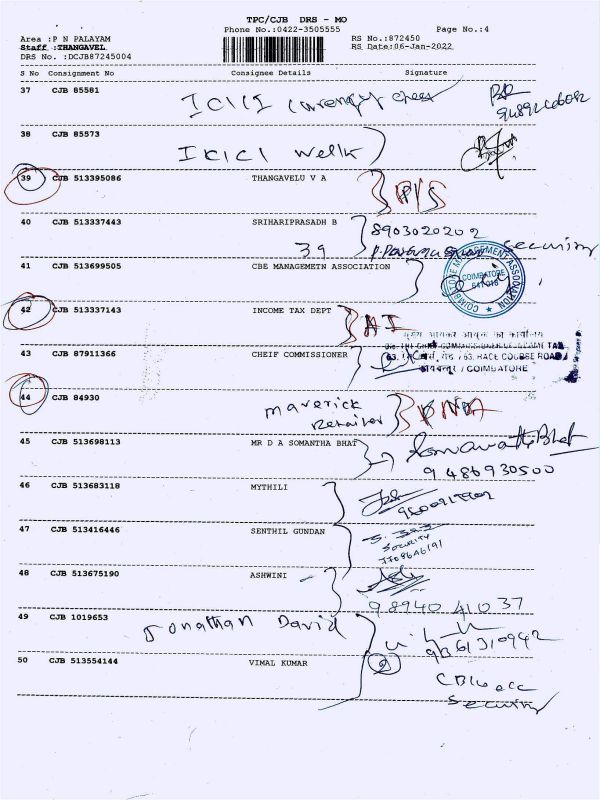 TPC/CJB DRS - MO
Area :P N PALAYAM Phone No.:0422-3505555 Page No.:4
Staff :THANGAVEL RS No.:872450
DRS No. :DCJB87245004 RS Date:06-Jan-2022
S No Consignment No Consignee Details Signature
37 CJB 85581
ICICI
38 CJB 85573
ICICI
39 CJB 513395086 THANGAVELU V A
40 CJB 513337443 SRIHARIPRASADH B
8903020202
39 Security
41 CJB 513699505 CBE MANAGEMETN ASSOCIATION
COIMBATORE MANAGEMENT ASSOCIATION
COIMBATORE
641018
42 CJB 513337143 INCOME TAX DEPT
AI
43 CJB 87911366 CHEIF COMMISSIONER
O/o. THE CHIEF COMMISSIONER OF INCOME TAX
63, RACE COURSE ROAD
COIMBATORE
44 CJB 84930
Maverick
Retailer
45 CJB 513698113 MR D A SOMANTHA BHAT
9486930500
46 CJB 513683118 MYTHILI
47 CJB 513416446 SENTHIL GUNDAN
Security
48 CJB 513675190 ASHWINI
98940 41037
49 CJB 1019653
Jonathan David
9361310942
50 CJB 513554144 VIMAL KUMAR
2
Security